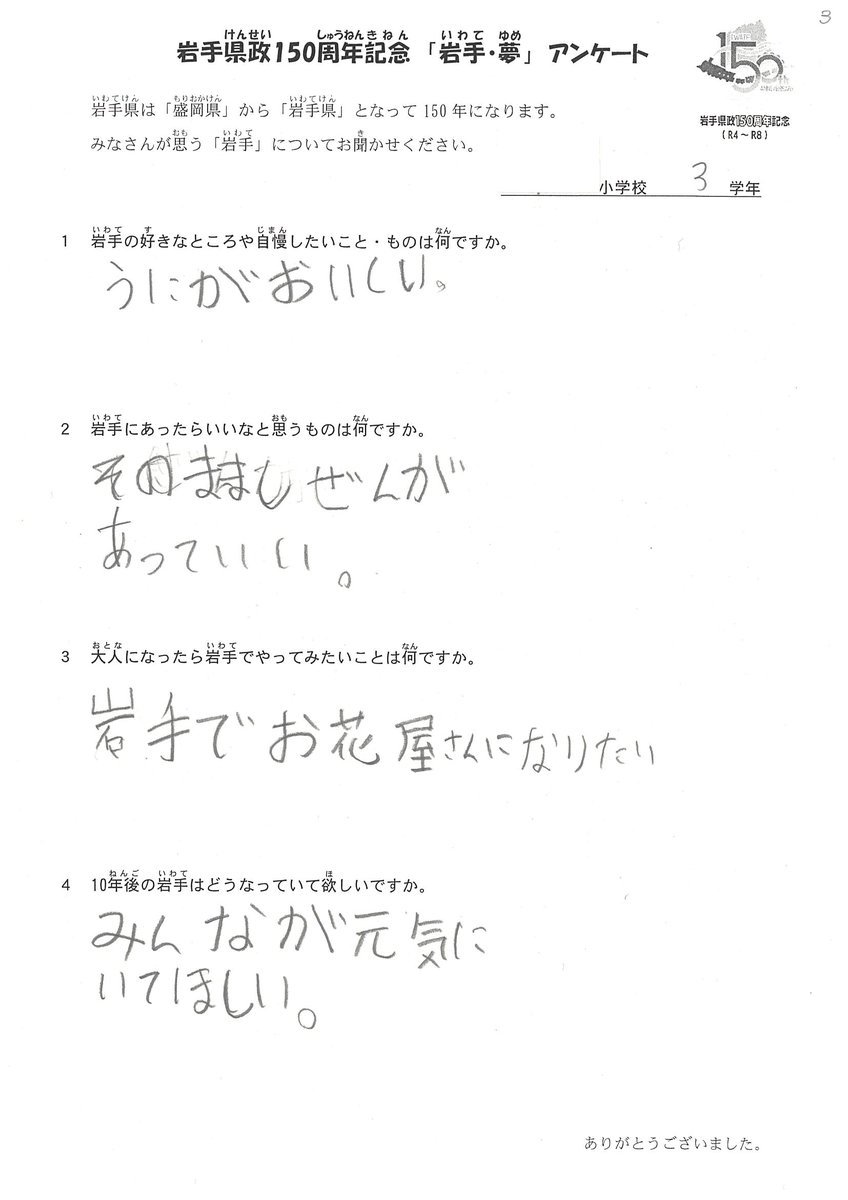 3
岩手県政150周年記念「岩手・夢」アンケート
岩手県は「盛岡県」から「岩手県」となって150年になります。
みなさんが思う「岩手」についてお聞かせください。
150th
岩手県政150周年記念
(R4～R8)
小学校 3 学年
1 岩手の好きなところや自慢したいこと・ものは何ですか。
うにがおいしい。
2 岩手にあったらいいなと思うものは何ですか。
そのまましぜんが
あっていい。
3 大人になったら岩手でやってみたいことは何ですか。
岩手でお花屋さんになりたい
4 10年後の岩手はどうなっていて欲しいですか。
みんながが元気に
いてほしい。
ありがとうございました。